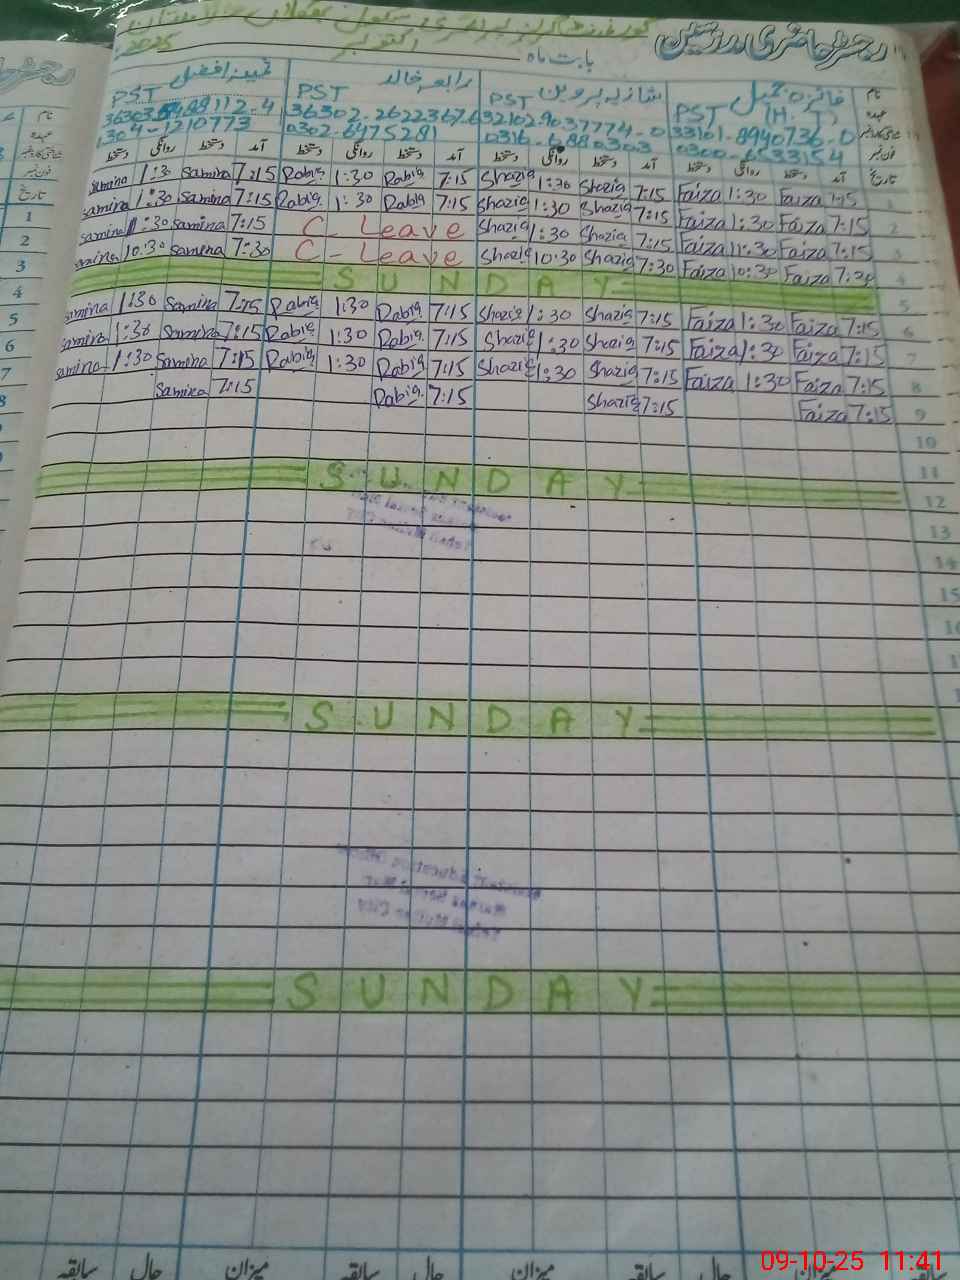 رجسٹر حاضری مدرسین
بابت ماہ اکتوبر 2025
نام فائزہ جمیل شازیہ پروین رابعہ خالد ثمینہ افضل
عہدہ PST (H.T) PST PST PST
33101-8940736-0 32102-9037774-0 36302-2622367-6
فون نمبر 0300-6533154 0316-6880303 0302-6475281 304-1210773
تاریخ آمد دستخط روانگی دستخط آمد دستخط روانگی دستخط آمد دستخط روانگی دستخط آمد دستخط روانگی دستخط
1 7:15 Faiza 1:30 Faiza 7:15 Shazia 1:30 Shazia 7:15 Rabia 1:30 Rabia 7:15 Samina 1:30 Samina
2 7:15 Faiza 1:30 Faiza 7:15 Shazia 1:30 Shazia 7:15 Rabia 1:30 Rabia 7:15 Samina 1:30 Samina
3 7:15 Faiza 11:30 Faiza 7:15 Shazia 1:30 Shazia C-Leave 7:15 Samina 11:30 Samina
4 7:30 Faiza 10:30 Faiza 7:30 Shazia 10:30 Shazia C-Leave 7:30 Samina 10:30 Samina
5 SUNDAY
6 7:15 Faiza 1:30 Faiza 7:15 Shazia 1:30 Shazia 7:15 Rabia 1:30 Rabia 7:15 Samina 1:30 Samina
7 7:15 Faiza 1:30 Faiza 7:15 Shazia 1:30 Shazia 7:15 Rabia 1:30 Rabia 7:15 Samina 1:30 Samina
8 7:15 Faiza 1:30 Faiza 7:15 Shazia 1:30 Shazia 7:15 Rabia 1:30 Rabia 7:15 Samina 1:30 Samina
9 7:15 Faiza 7:15 Shazia 7:15 Rabia 7:15 Samina
10
11
12 SUNDAY
13
14
15
SUNDAY
SUNDAY
میزان حال سابقہ میزان حال سابقہ میزان حال سابقہ
09-10-25 11:41